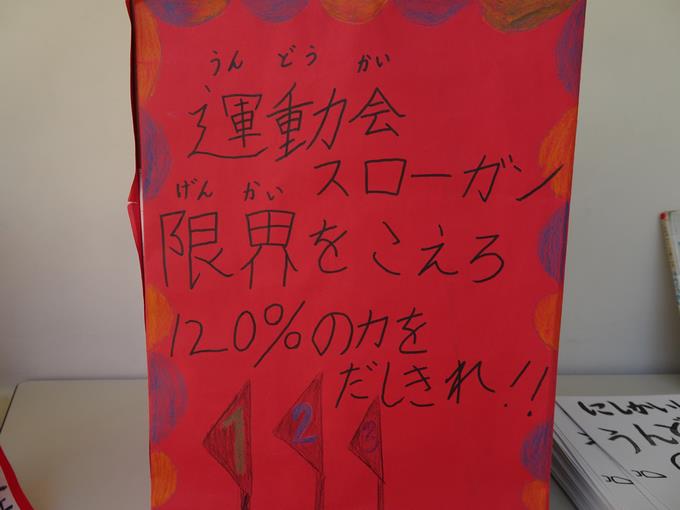 うんどうかい
運動会
スローガン
げんかい
限界をこえろ
120%の力を
だしきれ!!
1 2 3
にしかい
うんど